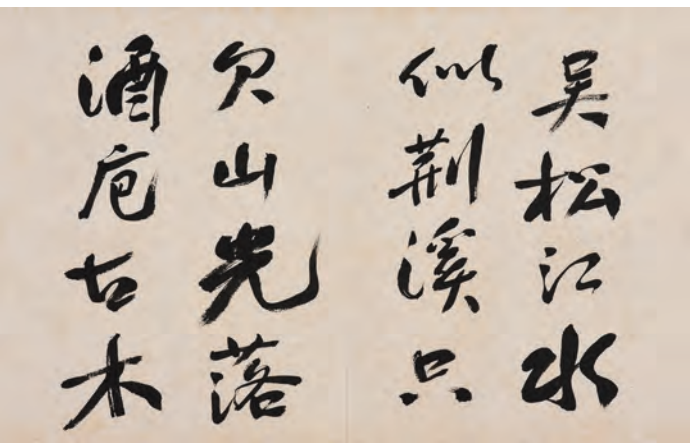 吴松江水
似荆溪只
欠山光落
酒卮古木